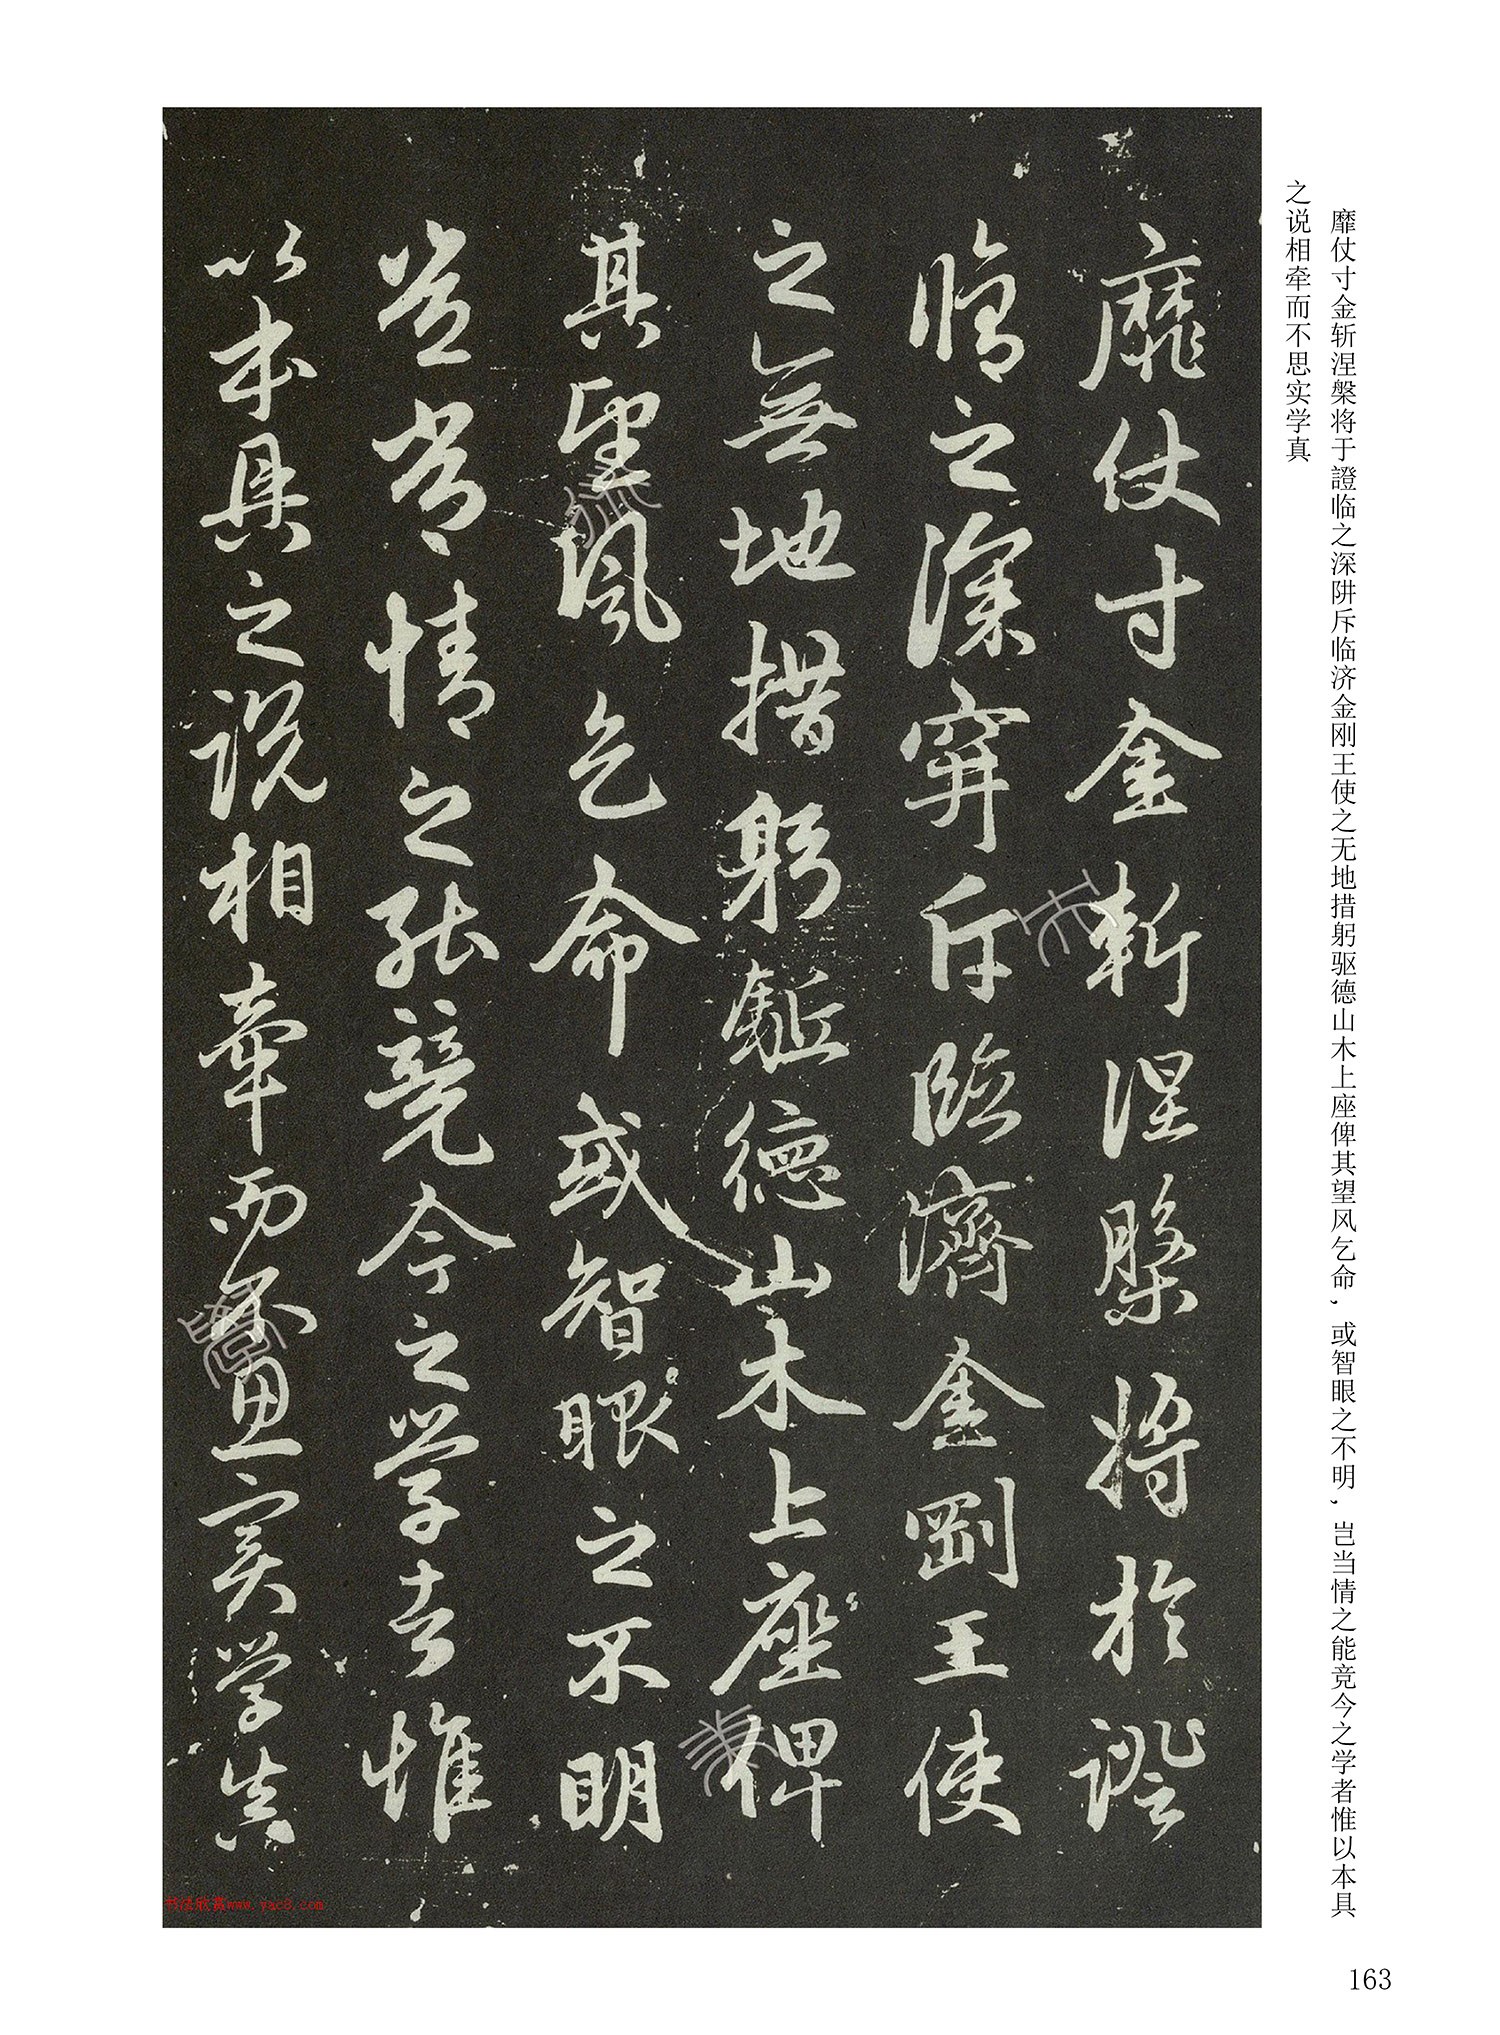 靡仗寸金斩涅槃将于證临之深阱斥临济金刚王使之无地措躬驱德山木上座俾其望风乞命，或智眼之不明，岂当情之能竞今之学者惟以本具
之说相牵而不思实学真
靡仗寸金斬涅槃將於證
之深穽斥臨濟金剛王使
之無地措躬駈德山木上座俾
其望風乞命或智眼之不明
豈當情之能競今之学者惟
以本具之説相牽而不思实学真
书法欣赏www.yac8.com
163